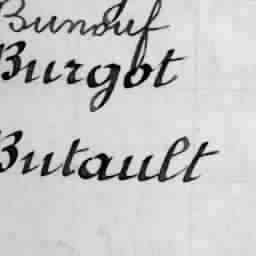 Bunouf
Burgot
Butault